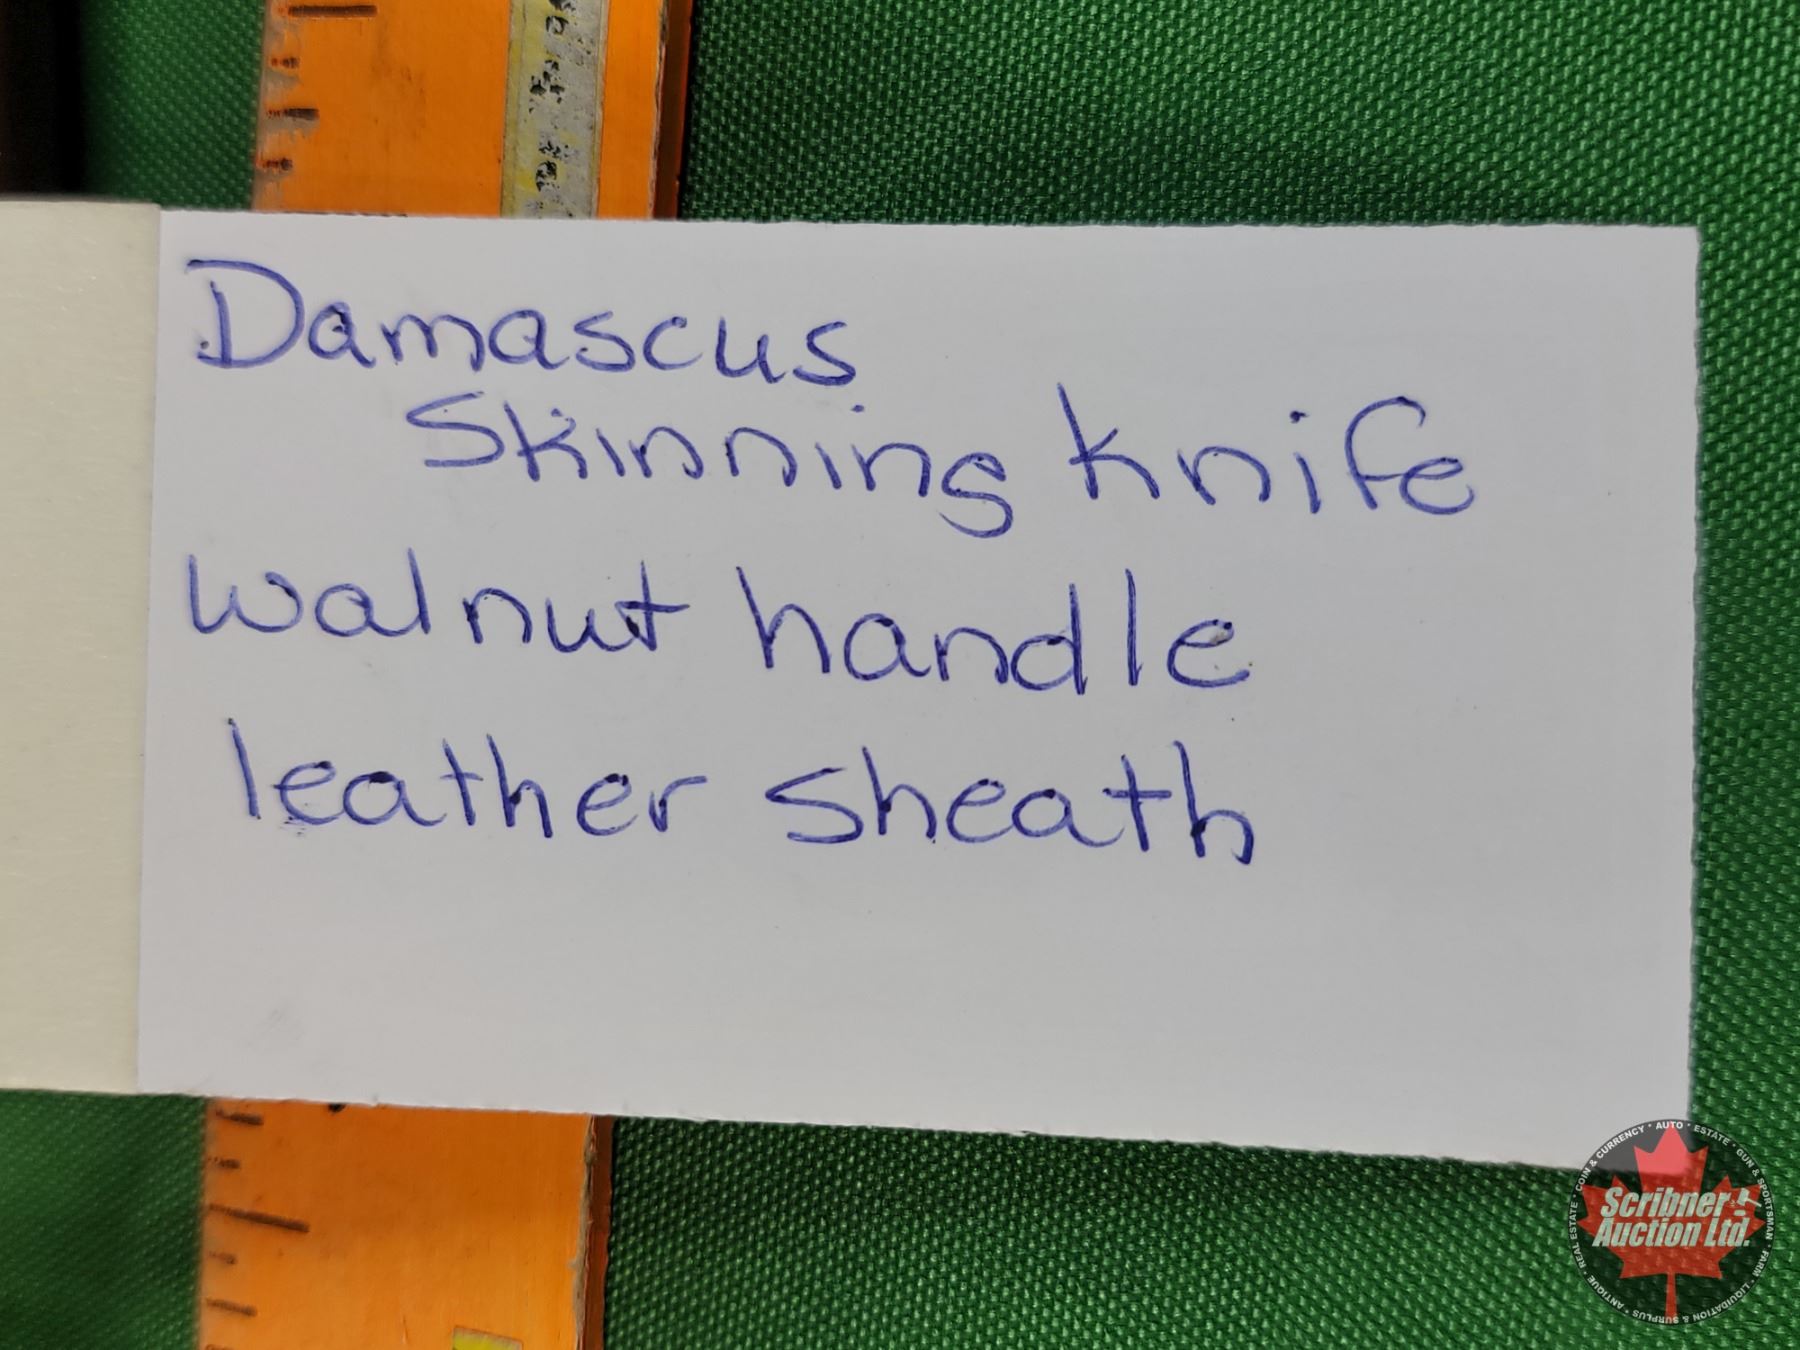 Damascus
Skinning knife
walnut handle
leather sheath
COIN & CURRENCY · AUTO · ESTATE · GUN & SPORTSMAN · FARM · LIQUIDATION & SURPLUS · ANTIQUE · REAL ESTATE ·
Scribner
Auction Ltd.